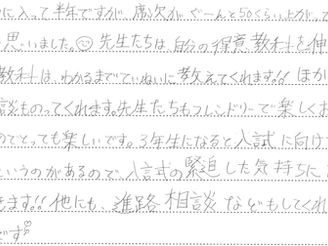 に入って半年ですが、席次が、ぐーんと50くらい上がって
思いました。☺先生たちは、自分の得意教科を伸
教科は、わかるまでていねいに教えてくれます!! ほか
談ものってくれます。先生たちもフレンドリーで楽しくお
のでとっても楽しいです。3年生になると入試に向け
というのがあるので、入試の緊迫した気持ちに
きます!! 他にも、進路相談などもしてくれ
です♡